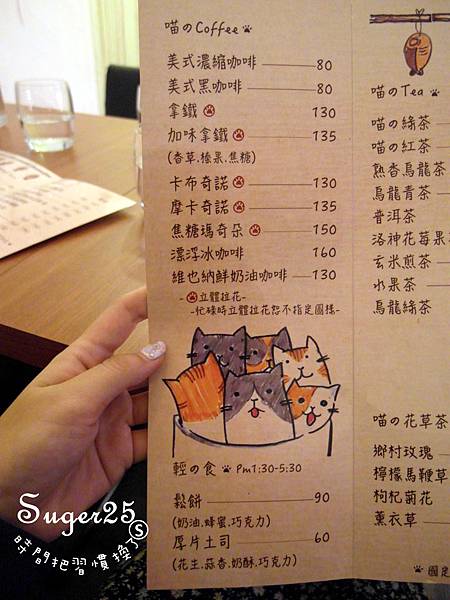 喵のCoffee
美式濃縮咖啡 80
美式黑咖啡 80
拿鐵 130
加味拿鐵 135
(香草.榛果.焦糖)
卡布奇諾 130
摩卡奇諾 135
焦糖瑪奇朵 150
漂浮冰咖啡 160
維也納鮮奶油咖啡 130
-立體拉花-
-忙碌時立體拉花恕不指定圖樣-
輕の食 Pm1:30-5:30
鬆餅 90
(奶油.蜂蜜.巧克力)
厚片土司 60
(花生.蒜香.奶酥.巧克力)
喵のTea
喵の綠茶
喵の紅茶
熟香烏龍茶
烏龍青茶
普洱茶
洛神花莓果
玄米煎茶
水果茶
烏龍綠茶
喵の花草茶
鄉村玫瑰
檸檬馬鞭草
枸杞菊花
薰衣草
Suger25
時間把習慣換了